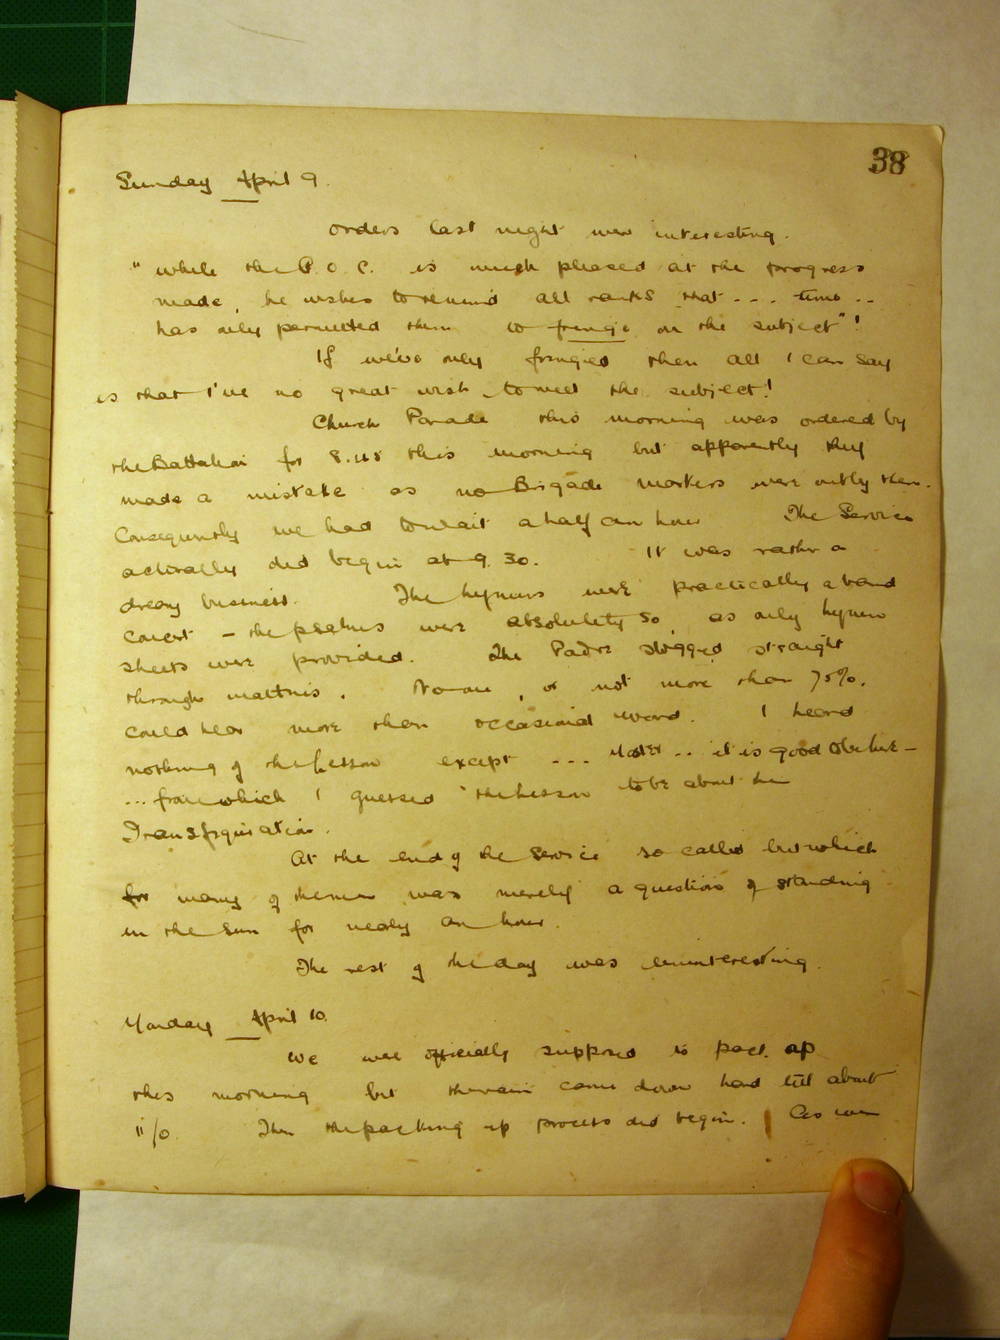 38
Sunday April 9.
Orders last night were interesting.
"while the G.O.C. is much pleased at the progress
made, he wishes to remind all ranks that ... time ..
has only permitted them to fringe on the subject"!
If we've only fringed then all I can say
is that I've no great wish to meet the subject!
Church Parade this morning was ordered by
the Battalion for 8.45 this morning but apparently they
made a mistake as no Brigade markers were out by then.
Consequently we had to wait a half an hour The Service
actually did begin at 9.30. It was rather a
dreary business. The hymns were practically a band
concert - the psalms were absolutely so, as only hymn
sheets were provided. The Padre slogged straight
through mattins. No one, or not more than 75%,
could hear more than occasional word. I heard
nothing of the lesson except ... Master .. it is good to be here -
... from which I guessed the lesson to be about the
Transfiguration.
At the end of the Service so called but which
for many of the men was merely a question of standing
in the sun for nearly an hour.
The rest of the day was uninteresting.
Monday April 10.
We were officially supposed to pack up
this morning but the rain came down hard till about
11/0. Then the packing up process did begin. As we